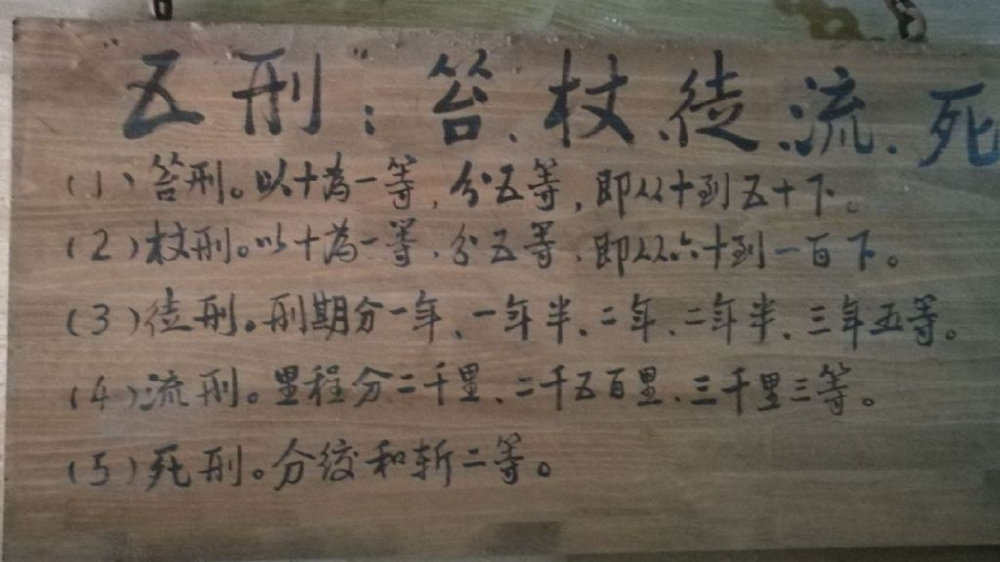 “五刑”：笞、杖、徒、流、死
(1)笞刑。以十为一等，分五等，即从十到五十下。
(2)杖刑。以十为一等，分五等，即从六十到一百下。
(3)徒刑。刑期分一年、一年半、二年、二年半、三年五等。
(4)流刑。里程分二千里、二千五百里、三千里三等。
(5)死刑。分绞和斩二等。